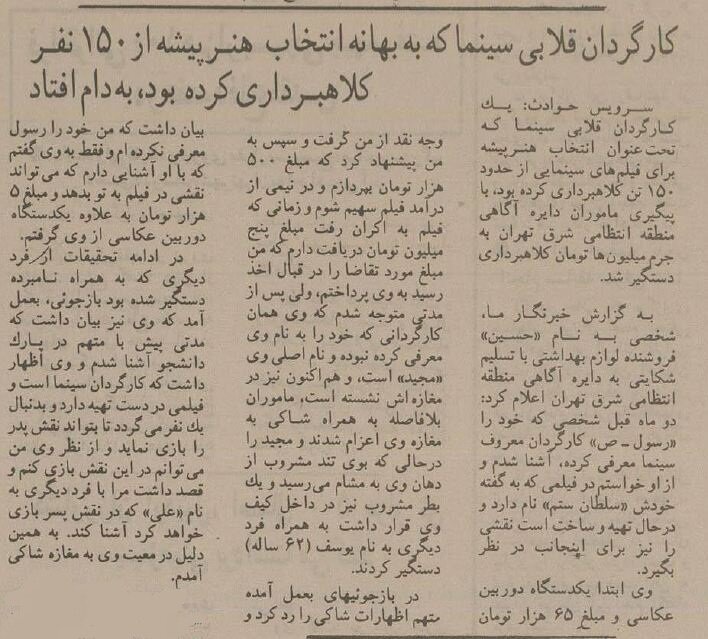 کارگردان قلابی سینما که به بهانه انتخاب هنرپیشه از ۱۵۰ نفر
کلاهبرداری کرده بود، به دام افتاد
سرویس حوادث: یك
کارگردان قلابی سینما که
تحت عنوان انتخاب هنرپیشه
برای فیلم‌های سینمایی از حدود
۱۵۰ تن کلاهبرداری کرده بود، با
پیگیری ماموران دایره آگاهی
منطقه انتظامی شرق تهران به
جرم میلیون‌ها تومان کلاهبرداری
دستگیر شد.
به گزارش خبرنگار ما،
شخصی به نام «حسین»
فروشنده لوازم بهداشتی با تسلیم
شکایتی به دایره آگاهی منطقه
انتظامی شرق تهران اعلام کرد:
دو ماه قبل شخصی که خود را
«رسول ـ ص» کارگردان معروف
سینما معرفی کرده، آشنا شدم و
از او خواستم در فیلمی که به گفته
خودش «سلطان ستم» نام دارد و
درحال تهیه و ساخت است نقشی
را نیز برای اینجانب در نظر
بگیرد.
وی ابتدا یکدستگاه دوربین
عکاسی و مبلغ ۶۵ هزار تومان
وجه نقد از من گرفت و سپس به
من پیشنهاد کرد که مبلغ ۵۰۰
هزار تومان بپردازم و در نیمی از
درآمد فیلم سهیم شوم و زمانی که
فیلم به اکران رفت مبلغ پنج
میلیون تومان دریافت دارم که من
مبلغ مورد تقاضا را در قبال اخذ
رسید به وی پرداختم، ولی پس از
مدتی متوجه شدم که وی همان
کارگردانی که خود را به نام وی
معرفی کرده نبوده و نام اصلی وی
«مجید» است، و هم‌اکنون نیز در
مغازه‌اش نشسته است، ماموران
بلافاصله به همراه شاکی به
مغازه وی اعزام شدند و مجید را
درحالی که بوی تند مشروب از
دهان وی به مشام می‌رسید و یك
بطر مشروب نیز در داخل کیف
وی قرار داشت به همراه فرد
دیگری به نام یوسف (۶۲ ساله)
دستگیر کردند.
در بازجوئیهای بعمل آمده
متهم اظهارات شاکی را رد کرد و
بیان داشت که من خود را رسول
معرفی نکرده‌ام و فقط به وی گفتم
که با او آشنایی دارم که می‌تواند
نقشی در فیلم به تو بدهد و مبلغ ۵
هزار تومان به علاوه یکدستگاه
دوربین عکاسی از وی گرفتم.
در ادامه تحقیقات از فرد
دیگری که به همراه نامبرده
دستگیر شده بود بازجوئی، بعمل
آمد که وی نیز بیان داشت که
مدتی پیش با متهم در پارك
دانشجو آشنا شدم و وی اظهار
داشت که کارگردان سینما است و
فیلمی در دست تهیه دارد و بدنبال
یك نفر می‌گردد تا بتواند نقش پدر
را بازی نماید و از نظر وی من
می‌توانم در این نقش بازی کنم و
قصد داشت مرا با فرد دیگری به
نام «علی» که در نقش پسر بازی
خواهد کرد آشنا کند. به همین
دلیل در معیت وی به مغازه شاکی
آمدم.